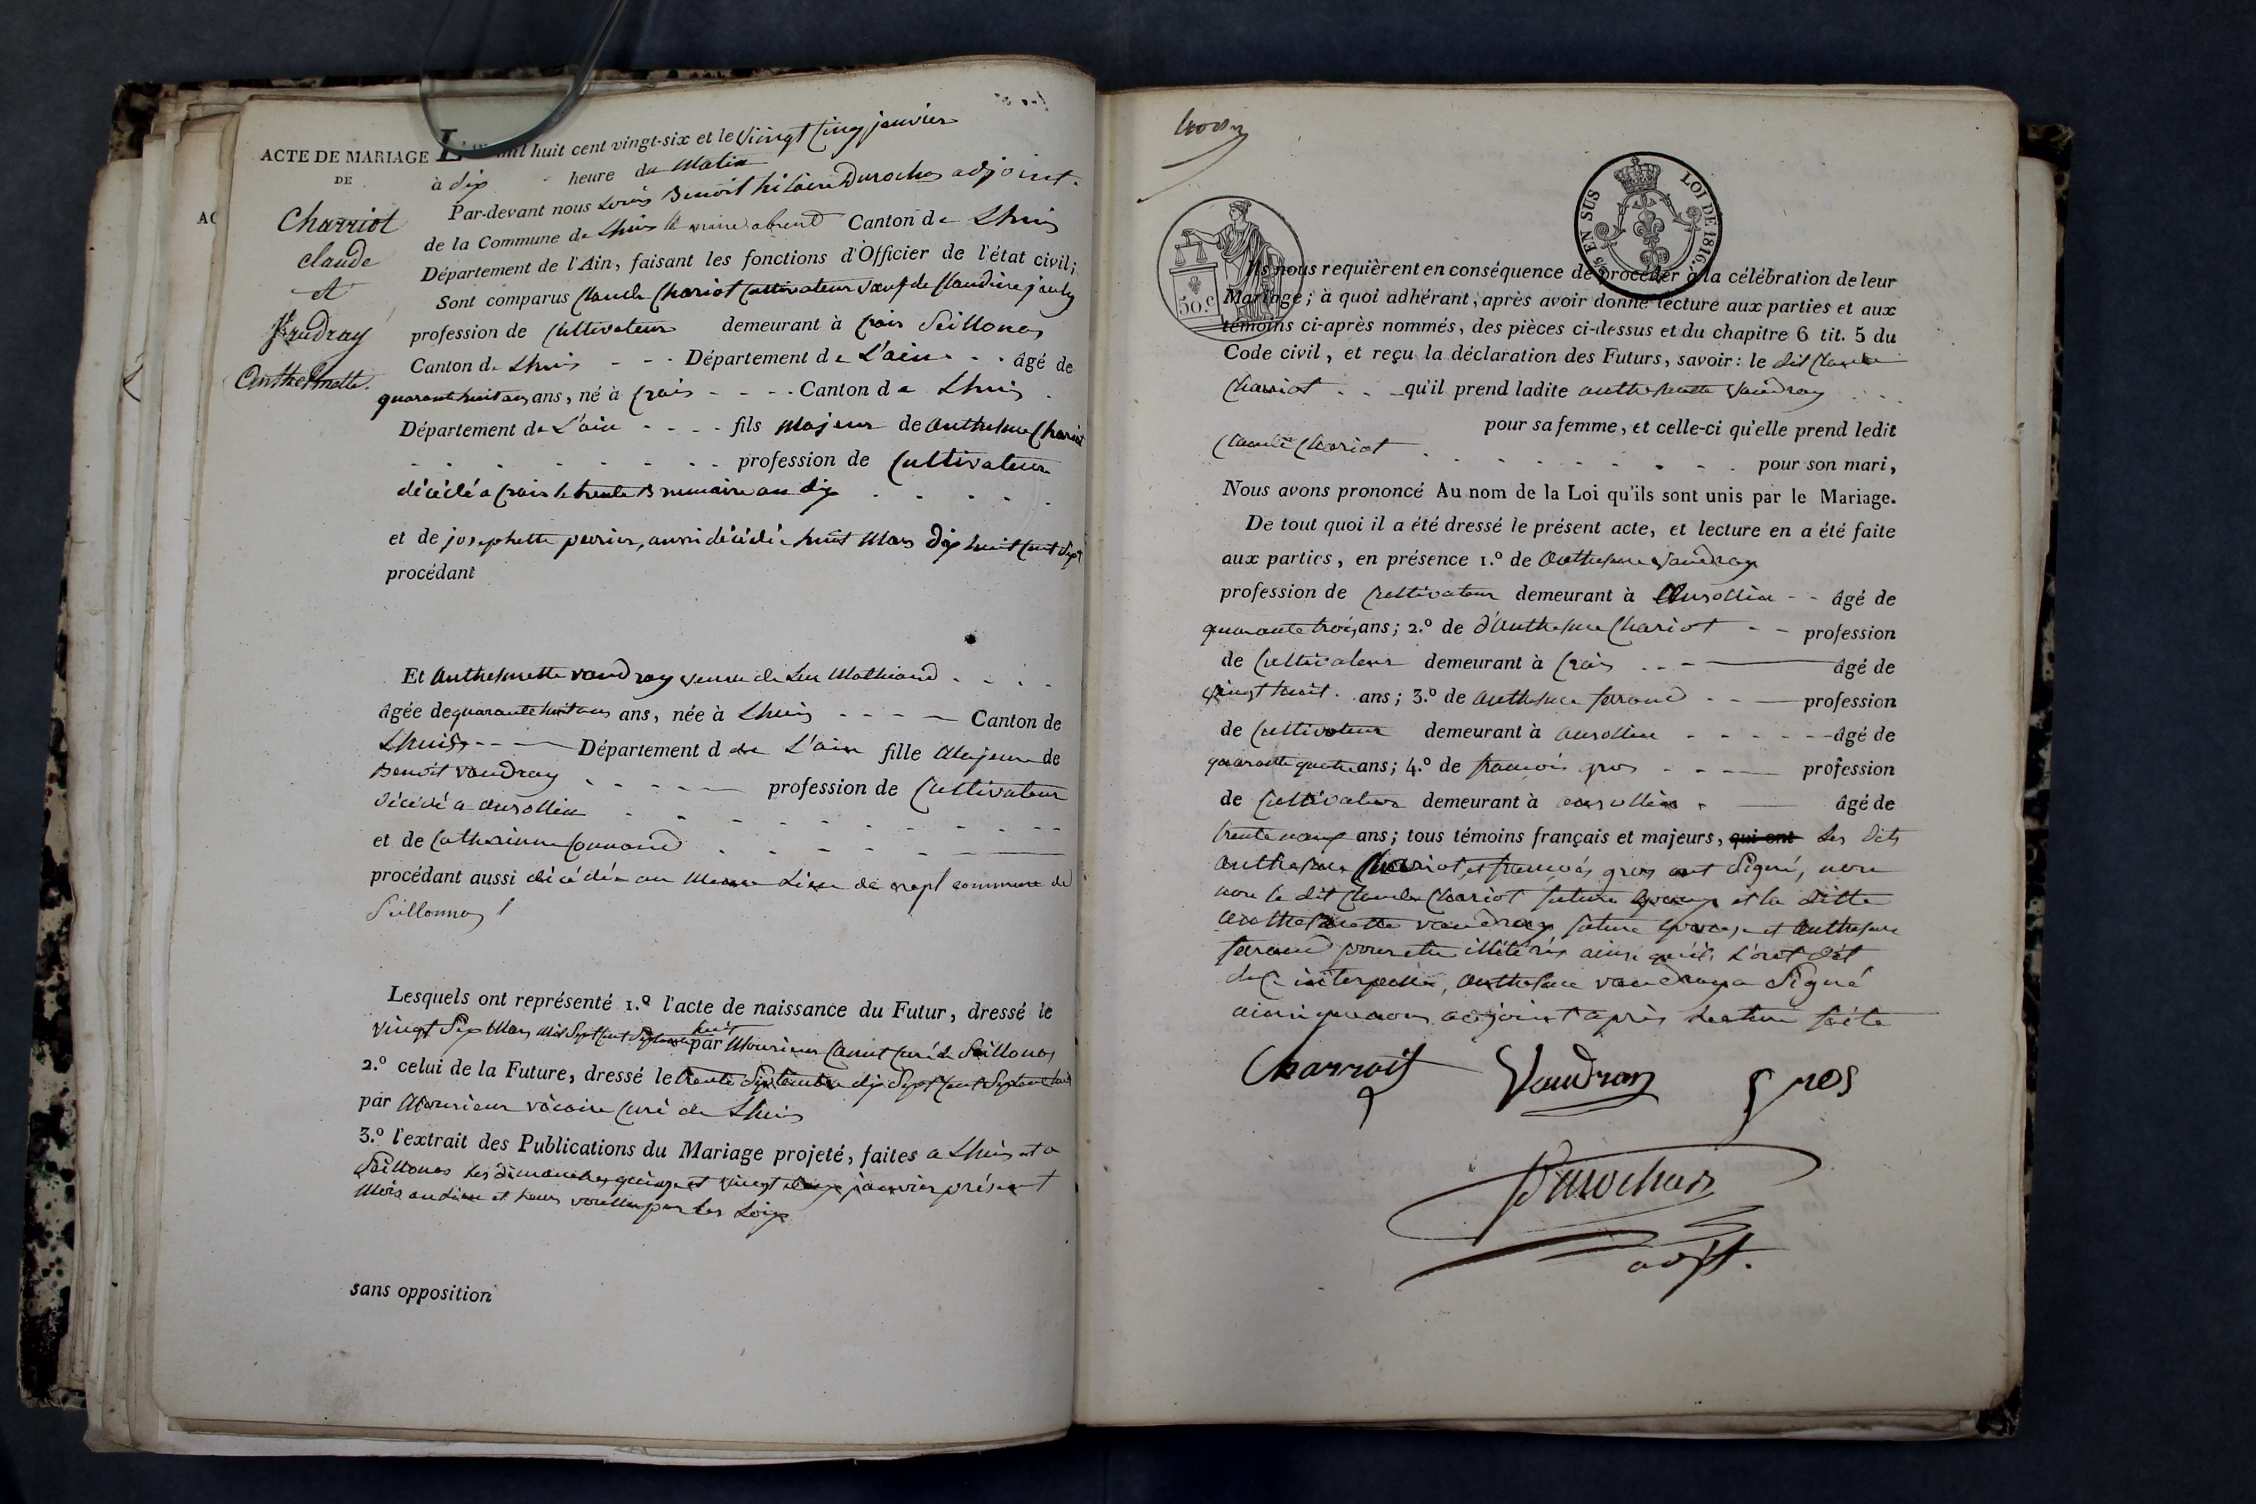 ACTE DE MARIAGE
DE
Charriot
claude
et
Vaudray
Anthelmette.
L'an mil huit cent vingt-six et le vingt cinq janvier
à dix heure du Matin
Par-devant nous Louis Benoit hilaire Durochas adjoint
de la Commune de Lhuis le maire absent Canton de Lhuis
Département de l'Ain, faisant les fonctions d'Officier de l'état civil;
Sont comparus Claude Chariot Cultivateur veuf de Claudine
profession de Cultivateur demeurant à Crais Seillonas
Canton de Lhuis - - - Département de L'ain - - âgé de
quarante huit ans ans, né à Crais - - - - Canton de Lhuis
Département de L'ain - - - - fils Majeur de Anthelme Chariot
profession de Cultivateur
décédé a Crais le trente Brumaire an dix
et de josephette perrier, aussi décédée huit Mars dix huit Cent Sept
procédant
Et Anthelmette vaudray veuve de Mathiand
âgée de quarante huit ans ans, née à Lhuis - - - - Canton de
Lhuis - - - Département d de L'ain fille Majeure de
Benoit vaudray - - - - - profession de Cultivateur
décédé a ansollin
et de Catherinne
procédant aussi décédée au Meme Lieu de commune de
Seillonnas
Lesquels ont représenté 1.º l'acte de naissance du Futur, dressé le
vingt Sep Mars Mil Sept Cent Septante huit par Monsieur Curé de Seillonas
2.º celui de la Future, dressé le trente Septembre dix Sept Cent Septante huit
par Monsieur curé de Lhuis
3.º l'extrait des Publications du Mariage projeté, faites a Lhuis et a
Seillonas les dimanches quinze et vingt deux janvier présent
Mois au lieu et heure voulue par les Loix
sans opposition
EN SUS
LOI DE 1816.
50.c
Ils nous requièrent en conséquence de procéder à la célébration de leur
Mariage; à quoi adhérant, après avoir donné lecture aux parties et aux
témoins ci-après nommés, des pièces ci-dessus et du chapitre 6 tit. 5 du
Code civil, et reçu la déclaration des Futurs, savoir: le dit Claude
Charriot - - qu'il prend ladite anthelmette Vaudray
pour sa femme, et celle-ci qu'elle prend ledit
Claude Chariot - - - - - pour son mari,
Nous avons prononcé Au nom de la Loi qu'ils sont unis par le Mariage.
De tout quoi il a été dressé le présent acte, et lecture en a été faite
aux parties, en présence 1.º de Anthelme Vaudray
profession de Cultivateur demeurant à Ansollin - - âgé de
quarante trois ans; 2.º de d'Anthelme Chariot - - profession
de Cultivateur demeurant à Crais - - - âgé de
vingt huit ans; 3.º de anthelme ferrand - - profession
de Cultivateur demeurant à ansollin - - - - âgé de
quarante quatre ans; 4.º de francois gros - - - profession
de Cultivateur demeurant à ansollin - âgé de
trente neuf ans; tous témoins français et majeurs, qui ont Les dits
anthelme Chariot, et francois gros ont Signé, non
non le dit Claude Chariot future Epoux et la ditte
anthelmette vaudray future Epouse et Anthelme
ferrand pour etre illitérés ainsi qu'ils L'ont dit
de ce interpellés, Anthelme vaudray a Signé
ainsi que nous adjoint après lecture faite
Charriot Vaudray gros
Durochas
adjt.